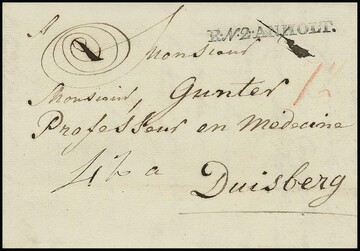 R.N.2.ANHOLT.
a Monsieur
Monsieur, Gunter
Professeur en Medecine
a
Duisberg